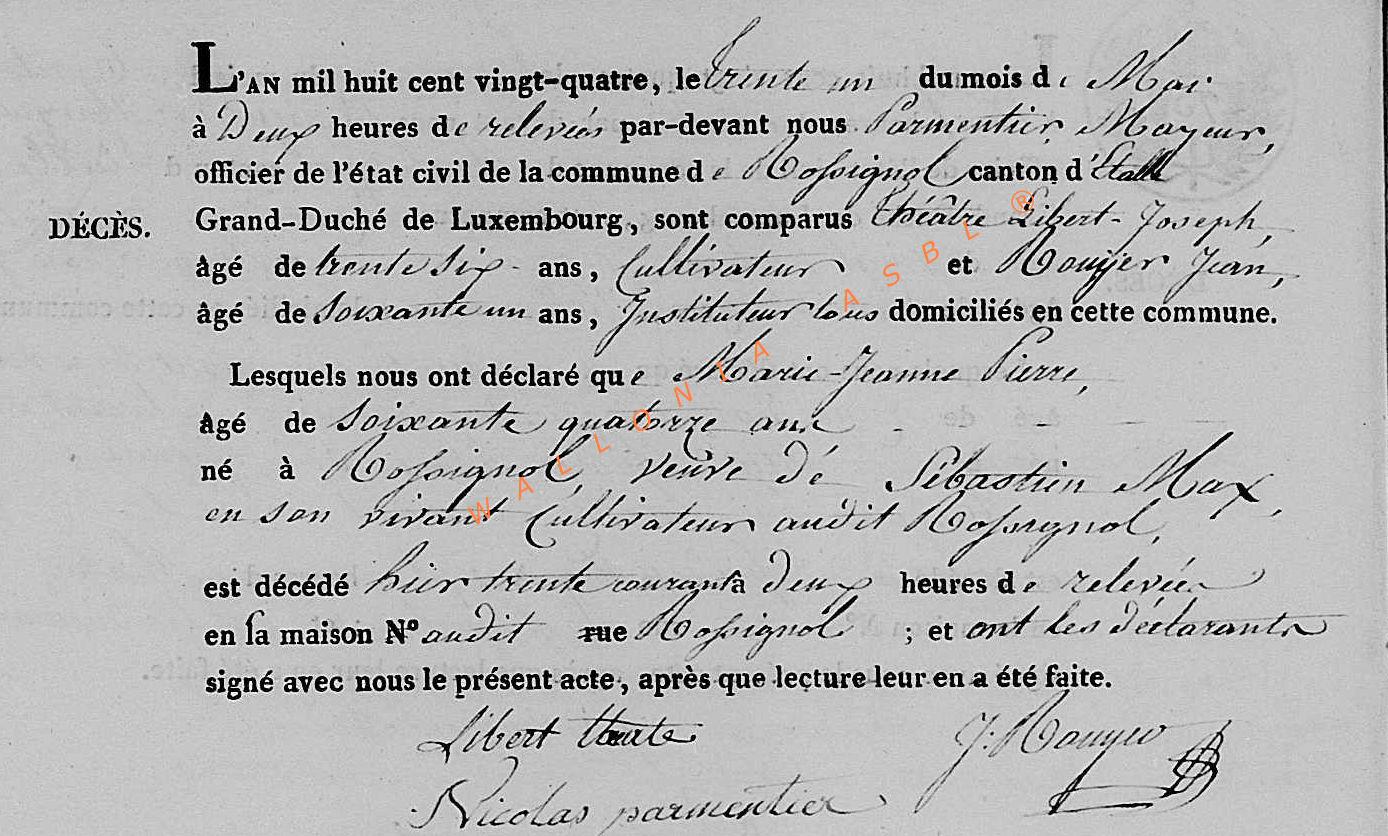 L'AN mil huit cent vingt-quatre, le trente un du mois de Mai
à Deux heures de relevées par-devant nous Parmentier, Mayeur,
officier de l'état civil de la commune de Rossignol canton d'Etalle
DÉCÈS. Grand-Duché de Luxembourg, sont comparus théâtre Libert-Joseph,
âgé de trente six ans, Cultivateur et Rouyer Jean,
âgé de Soixante un ans, Instituteur tous domiciliés en cette commune.
Lesquels nous ont déclaré que Marie-Jeanne Pierre,
âgé de Soixante quatorze ans
né à Rossignol, veuve de Sébastien Max,
en son vivant Cultivateur audit Rossignol,
est décédé hier trente courant à deux heures de relevées
en sa maison N° audit rue Rossignol ; et ont les déclarants
signé avec nous le présent acte, après que lecture leur en a été faite.
Libert J. Rouyer
Nicolas parmentier
WALLONIA ASBL ®